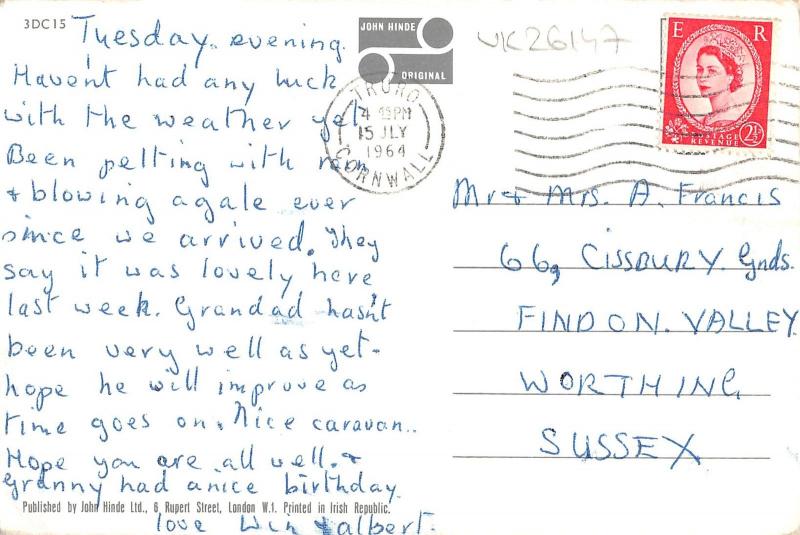 3DC15
JOHN HINDE
ORIGINAL
UK26147
E R
POSTAGE
REVENUE
2½
TRURO
4 15PM
15 JLY
1964
CORNWALL
Tuesday. evening.
Haven't had any luck
with the weather yet.
Been pelting with rain
+ blowing a gale ever
since we arrived. They
say it was lovely here
last week. Grandad hasn't
been very well as yet -
hope he will improve as
time goes on. Nice caravan..
Hope you are all well. +
Granny had a nice birthday.
love Win + albert.
Mr + Mrs. A. Francis
66, CISSBURY. Gnds.
FINDON. VALLEY.
WORTHING
SUSSEX
Published by John Hinde Ltd., 6, Rupert Street, London W.1. Printed in Irish Republic.